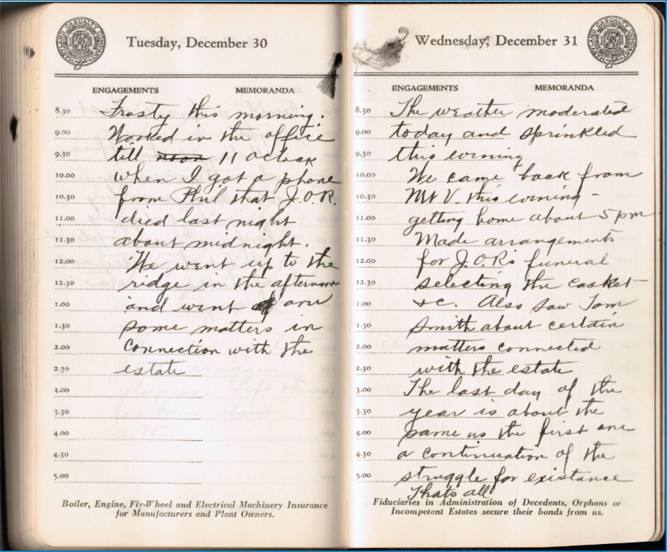 Tuesday, December 30
ENGAGEMENTS MEMORANDA
8.30 Frosty this morning.
9.00 Worked in the office
9.30 till noon 11 oclock
10.00 when I got a phone
10.30 from Phil that J.O.R.
11.00 died last night
11.30 about midnight.
12.00 We went up to the
12.30 ridge in the afternoon
1.00 and went over
1.30 some matters in
2.00 connection with the
2.30 estate
3.00
3.30
4.00
4.30
5.00
Boiler, Engine, Fly-Wheel and Electrical Machinery Insurance
for Manufacturers and Plant Owners.
Wednesday, December 31
ENGAGEMENTS MEMORANDA
8.30 The weather moderated
9.00 today and sprinkled
9.30 this evening
10.00 We came back from
10.30 Mt V. this evening -
11.00 getting home about 5 pm
11.30 Made arrangements
12.00 for J.O.R's funeral
12.30 selecting the casket
1.00 &c. Also saw Tom
1.30 Smith about certain
2.00 matters connected
2.30 with the estate
3.00 The last day of the
3.30 year is about the
4.00 same as the first one
4.30 a continuation of the
5.00 struggle for existance
Thats all
Fiduciaries in Administration of Decedents, Orphans or
Incompetent Estates secure their bonds from us.